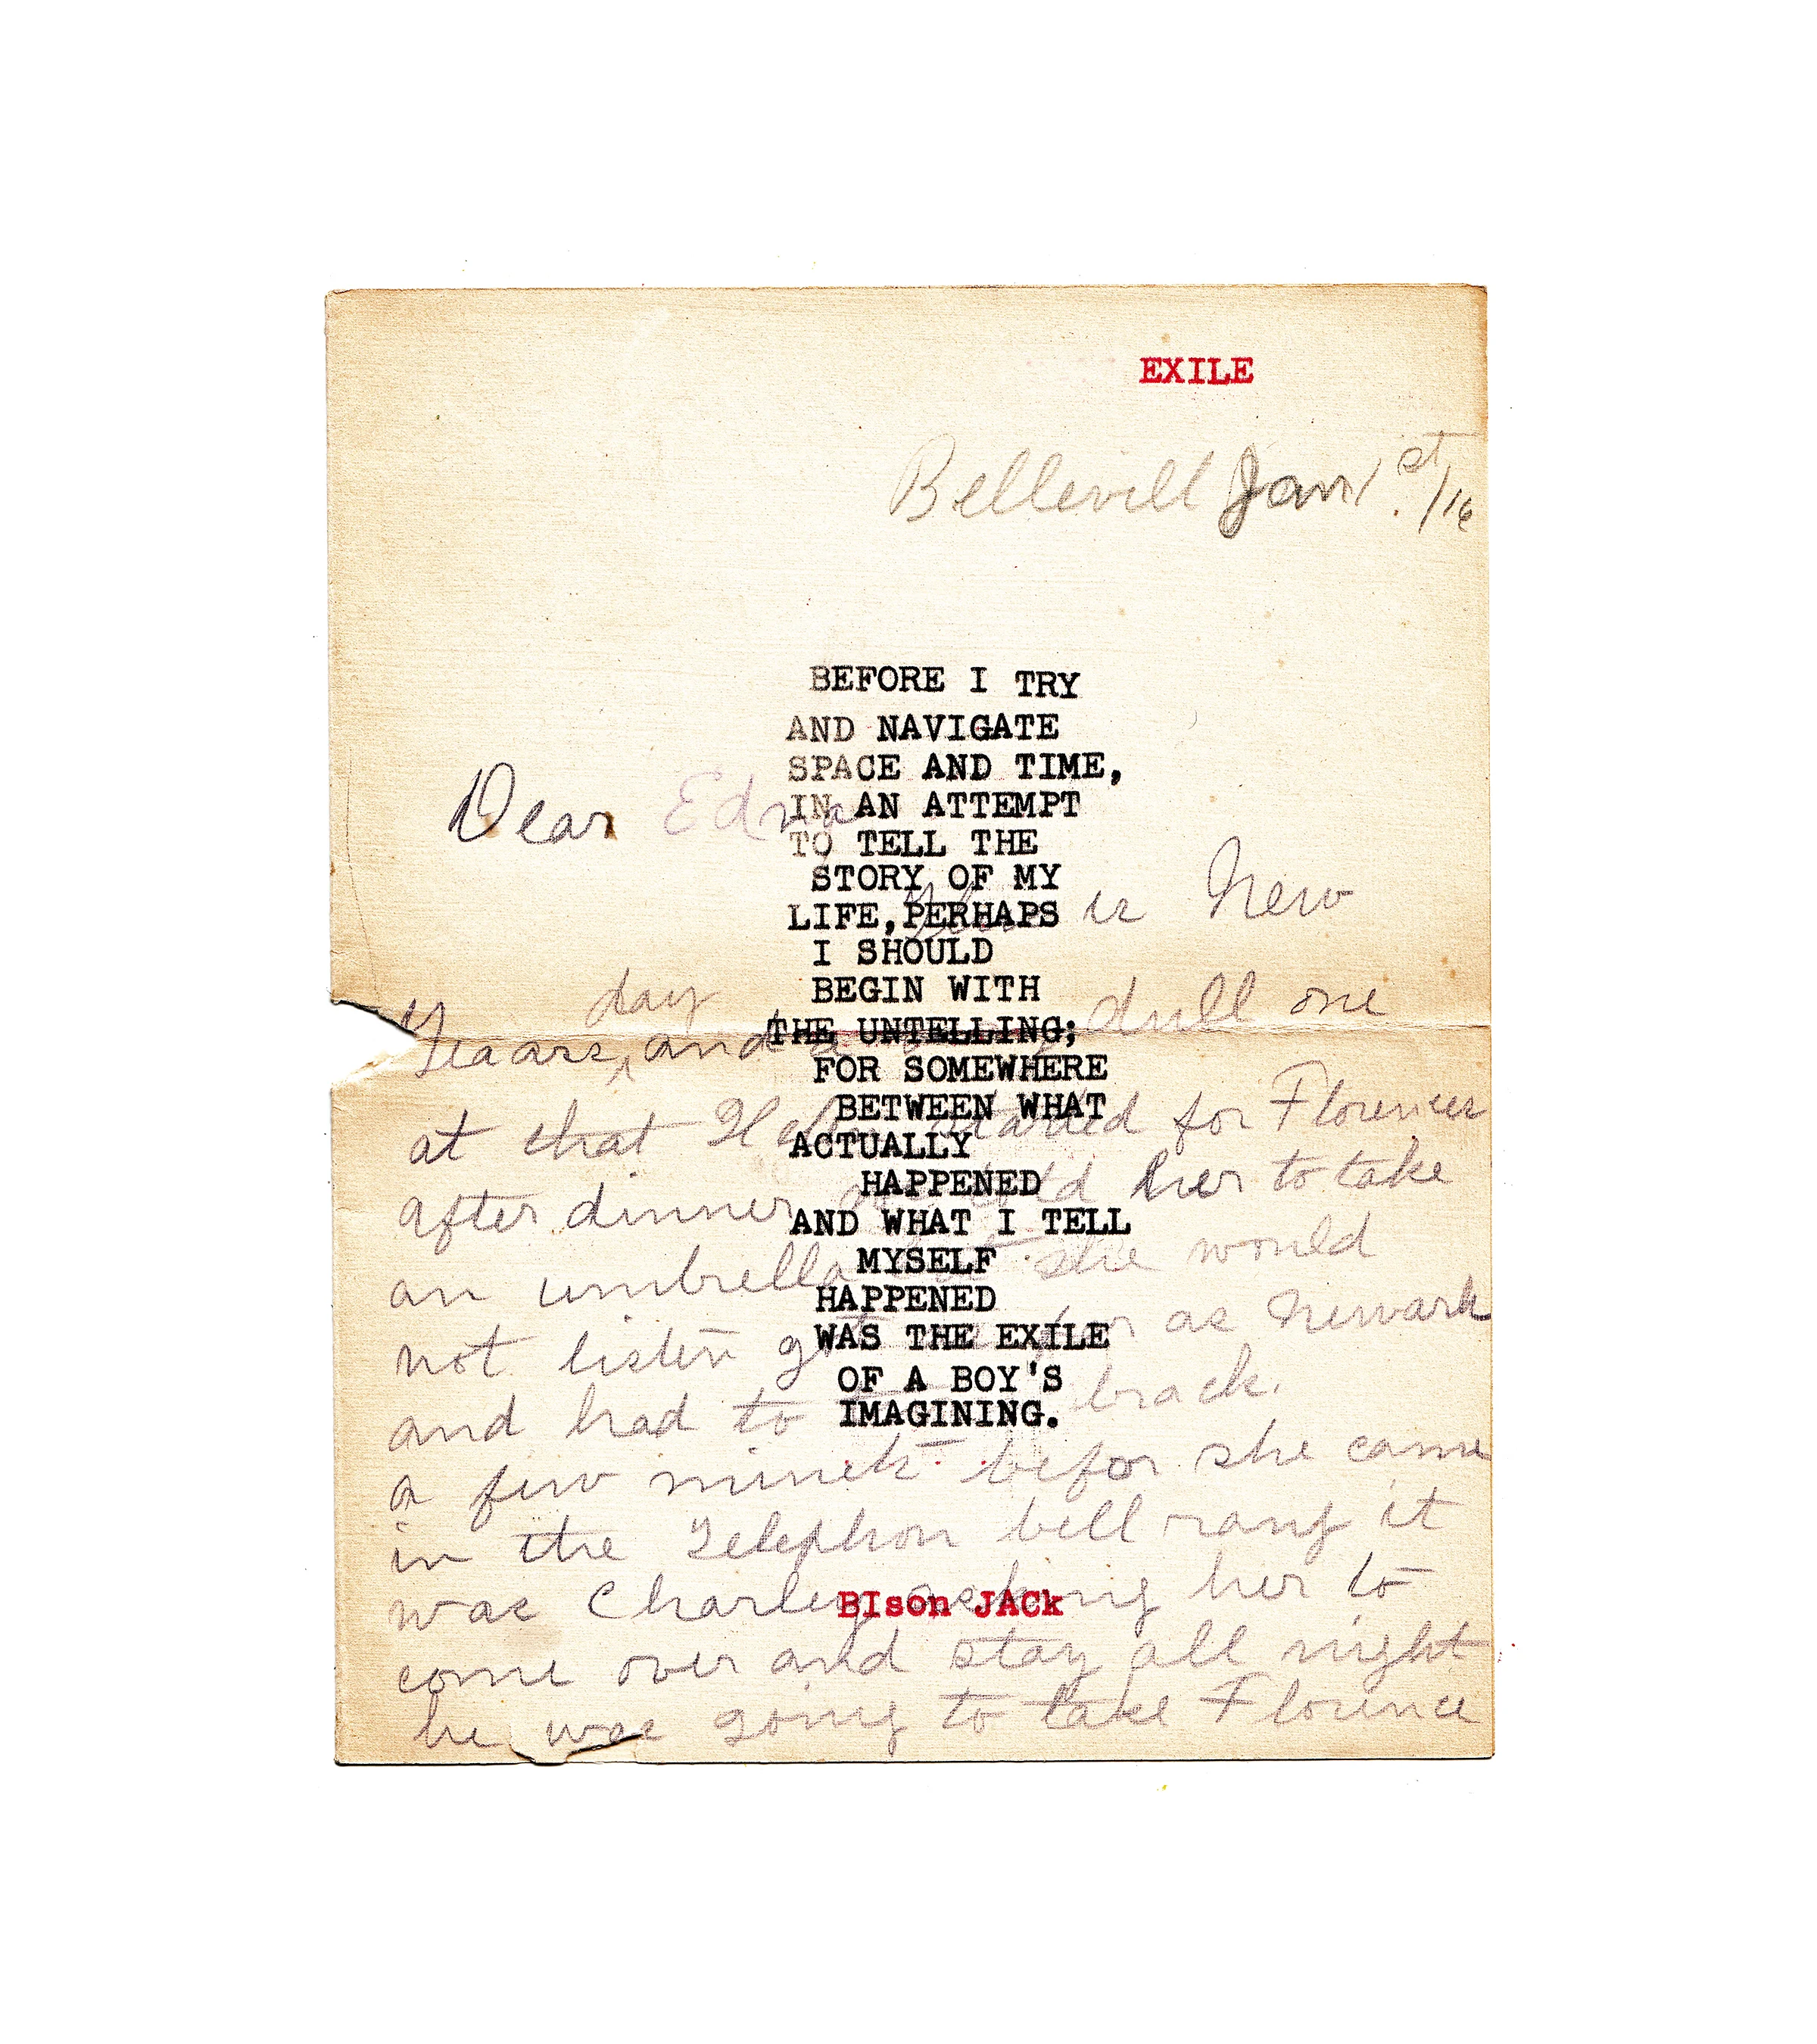 EXILE
Bellevill Jan 1st/16
BEFORE I TRY
AND NAVIGATE
SPACE AND TIME,
IN AN ATTEMPT
TO TELL THE
STORY OF MY
LIFE,PERHAPS
I SHOULD
BEGIN WITH
THE UNTELLING;
FOR SOMEWHERE
BETWEEN WHAT
ACTUALLY
HAPPENED
AND WHAT I TELL
MYSELF
HAPPENED
WAS THE EXILE
OF A BOY'S
IMAGINING.
BIson JACk
Dear Edna
is New
Yeaars, day and a dull one
at that started for Florences
after dinner told her to take
an umbrella she would
not listen got as Newark
and had to back.
a few minets befor she came
in the Telephon bell rang it
was Charley asking her to
come over and stay all night
he was going to take Florence